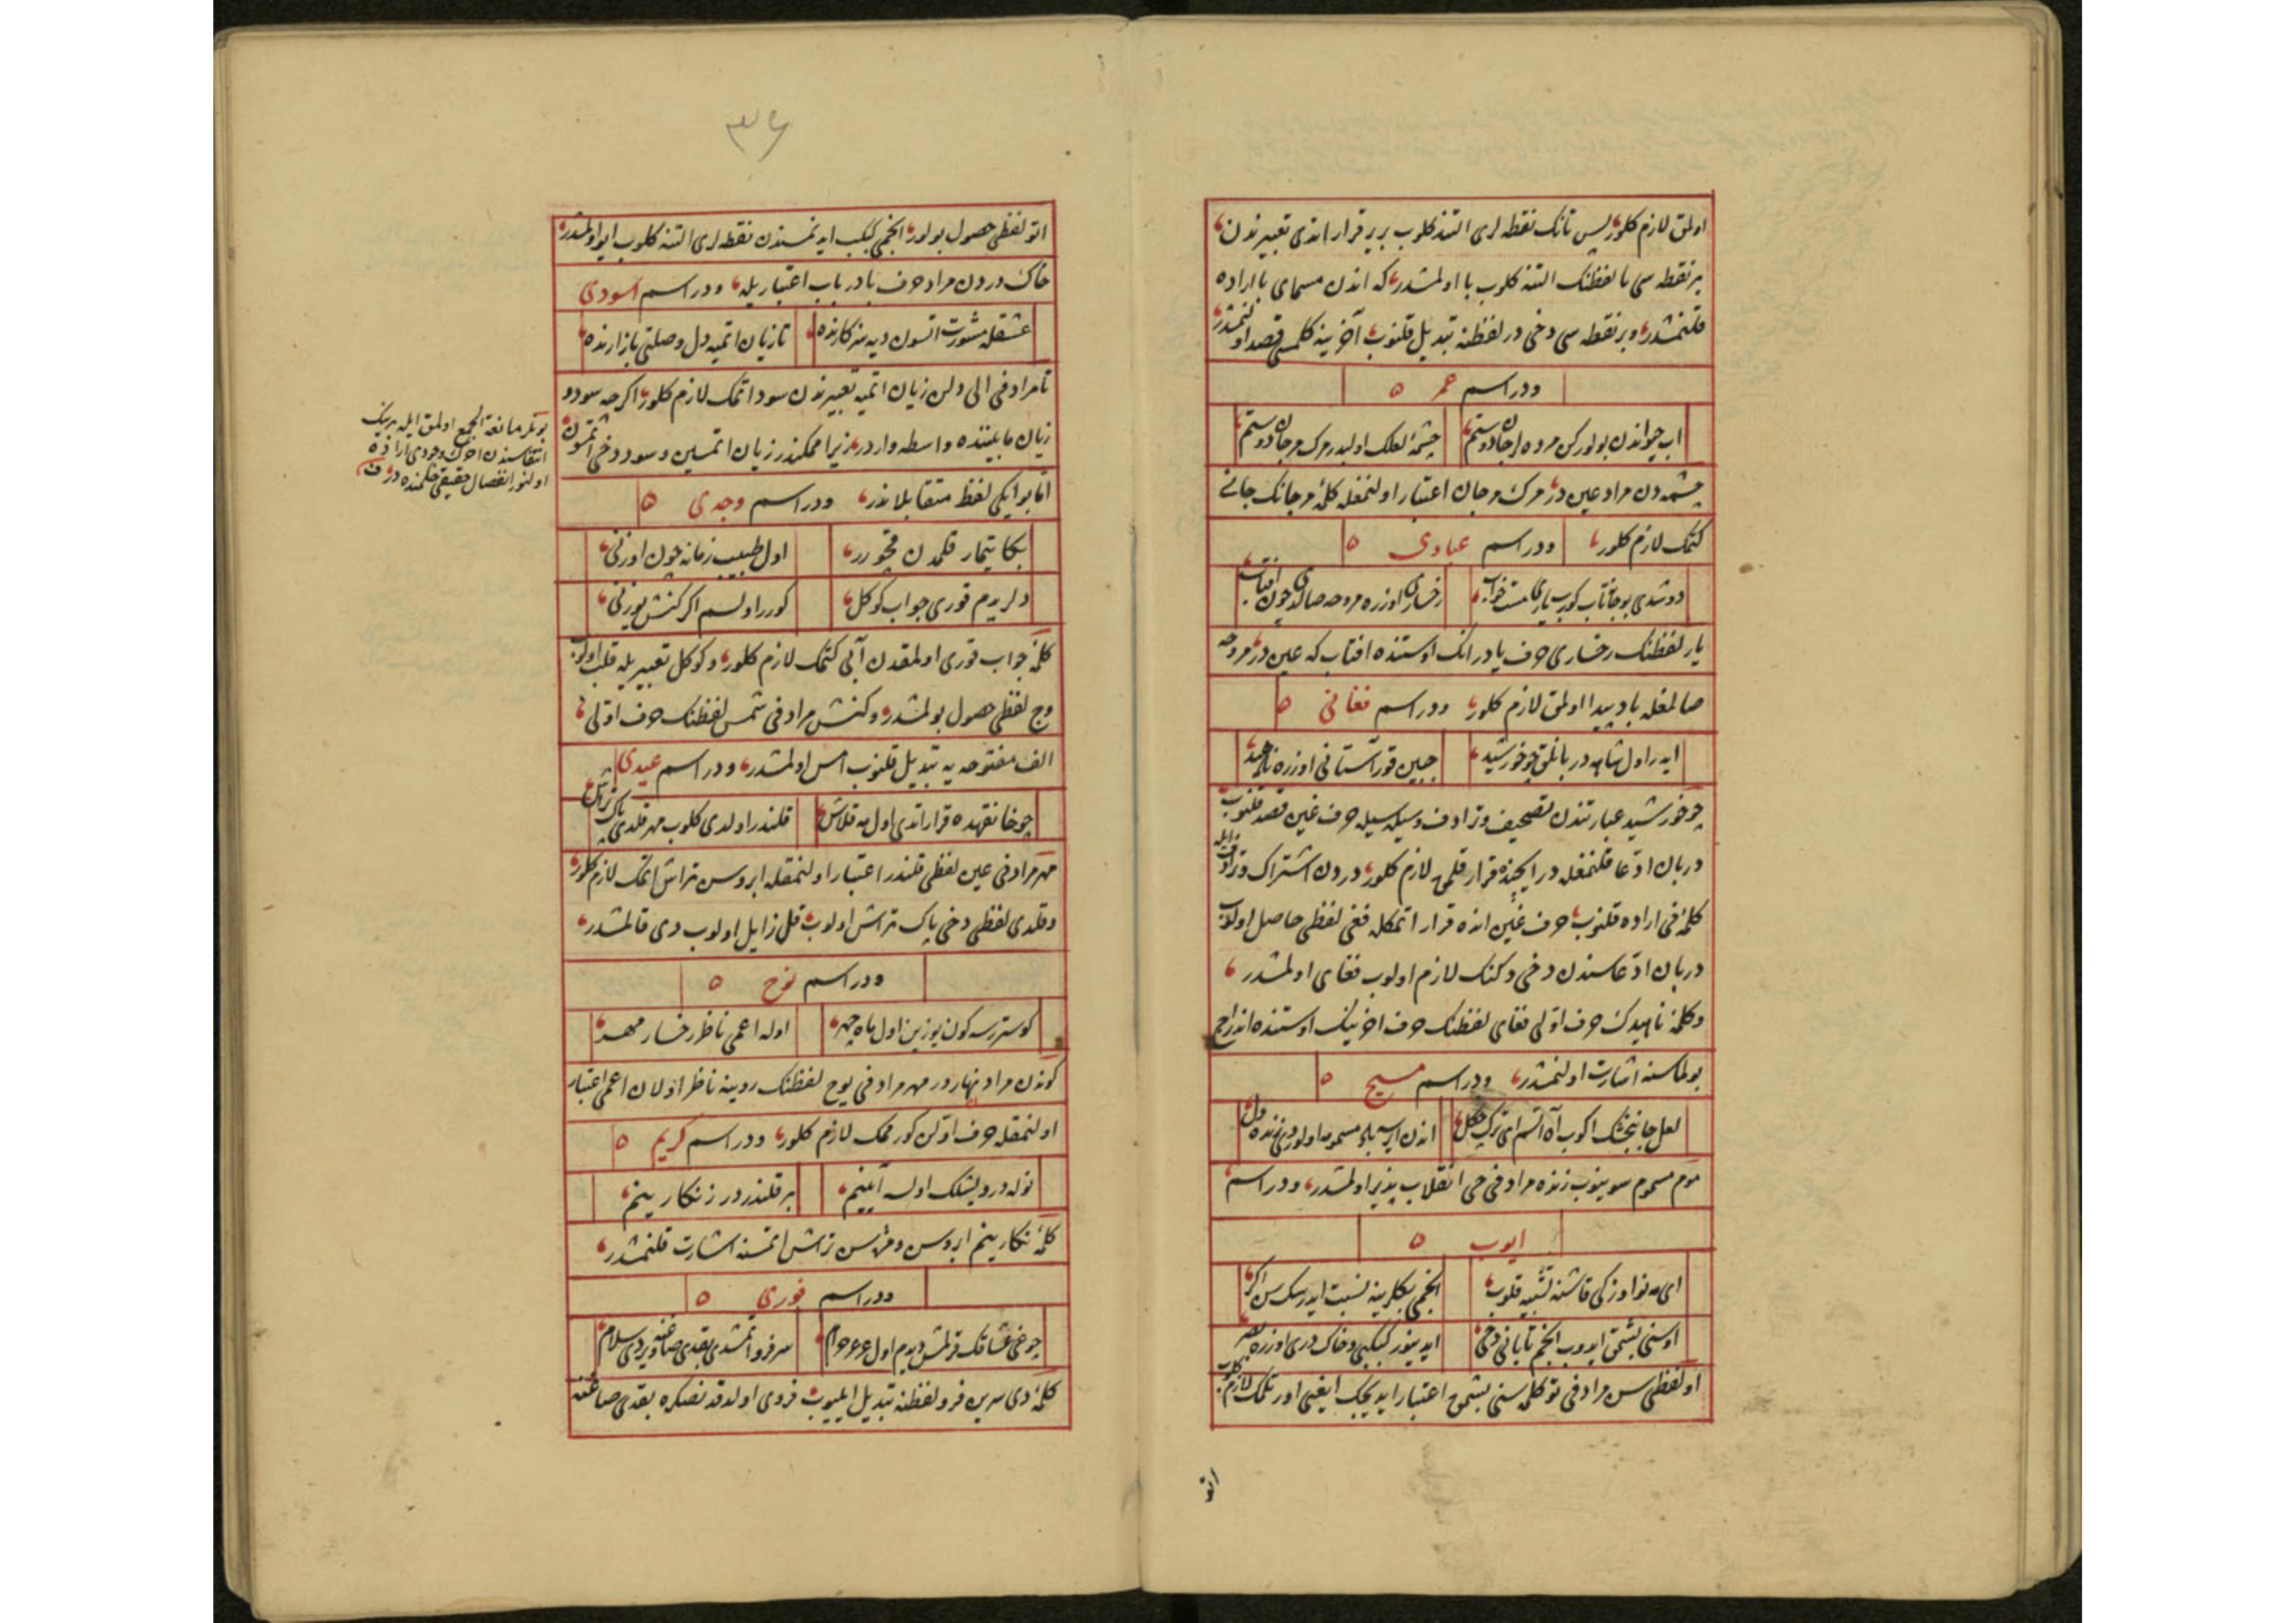 اولمق لازم کلور پس تانک نقطه لری التنه کلوب بریر قرار اتدی تعبیرندن
بر نقطه سی با لفظنک التنه کلوب با اولمشدر که اندن مسمای با اراده
قلنمشدر و بر نقطه سی دخی در لفظنه تبدیل قلنوب آخرینه کلمسی قصد اولنمشدر
ودر اسم عمر
اب حیواندن بولورکن مرده لر جان دوستم
چشمهٔ لعلک اولیدر مرک مرجان دوستم
چشمه دن مراد عین در مرک مرجان اعتبار اولنمغله کلمهٔ مرجانک جانی
کتمک لازم کلور ودر اسم عبادی
دوشدی بو جانتاب کورب یاری مست خواب
رخساری اوزره مروحه صالدی چون افتاب
یار لفظنک رخساری حرف یادر انک اوستنده افتاب که عین در مروحه
صالمغله باد پیدا اولمق لازم کلور ودر اسم فغانی
ایدر اول شاهه دربانلق چو خورشید
جبین قور آستانی اوزره ناهید
چو خورشید عبارتندن تصحیف وترادف وسیله سیله حرف غین قصد قلنوب
دربان ادعا قلنمغله در ایچنده قرار قلمق لازم کلور دردن اشتراک وترادف ایله
کلمهٔ فی اراده قلنوب حرف غین انده قرار اتمکله فغی لفظی حاصل اولوب
دربان ادعاسندن دخی دکنک لازم اولوب فغای اولمشدر
وکلمهٔ ناهیدک حرف اولی فغای لفظنک حرف اخرینک اوستنده اندراج
بولماسنه اشارت اولنمشدر ودر اسم مسیح
لعل جانبخشک اکوب آه اتسم ای ترک چکل
اندن ایرسه باد مسموم اولور دی زنده دل
موم مسموم سوینوب زنده مرادفی حی انقلاب پذیر اولمشدر ودر اسم
ایوب
ای مه نو اوزکی قاشنه تشبیه قلوب
انجمی بکلرینه نسبت ایدرسک سن اکر
اوسنی بشمق ایدوب انجم تابانی دخی
ایدینور کبکبی وخاک دری اوزره
او لفظی سن مرادفی تو کلمه سنی بشمق اعتبار ایدیجک ایغنی اورتمک لازم کلوب
اتو
٣٦
اتو لفظی حصول بولور انجمی کبکب ایدنمسندن نقطه لری التنه کلوب ایو اولمشدر
خاک دردن مراد حرف بادر باب اعتباریله ودر اسم سودی
عشقله مشورت اتسون دیه سر کارنده
تا زیان اتمیه دل وصلتی بازارنده
تا مرادفی الی دلن زیان اتمیه تعبیرندن سود اتمک لازم کلور اکرچه سود و
زیان مابیننده واسطه واردر زیرا ممکندر زیان اتمسین وسود دخی اتمسون
اما بو ایکی لفظ متقابلاندر ودر اسم وجدی
بکا تیمار قلمدن مخورر
اول طبیب زمانه چون اوزنی
دلریم قوری جواب کوکل
کورر اولسم اکر کنش یوزنی
کلمهٔ جواب قوری اولمقدن آبی کتمک لازم کلور وکوکل تعبیریله قلب اولوب
وج لفظی حصول بولمشدر وکنش مرادفی شمس لفظنک حرف اولی
الف مفتوحه یه تبدیل قلنوب امس اولمشدر ودر اسم عیدی
چو خانقهده قرار اتدی اول مه قلاش
قلندر اولدی کلوب مهر قلدی پاک تراش
مهر مرادفی عین لفظی قلندر اعتبار اولنمغله ابروسن تراش اتمک لازم کلور
وقلدی لفظی دخی پاک تراش اولوب قل زایل اولوب دی قالمشدر
ودر اسم نوح
کوسترسه کون یوزین اول ماه چهر
اوله اعمی ناظر رخسار مهر
کوندن مراد نهاردر مهر مرادفی یوح لفظنک روینه ناظر اولان اعمی اعتبار
اولنمغله حرف اولن کورممک لازم کلور ودر اسم کریم
نوله درویشلک اولسه آیینم
بر قلندردر ز نکارینم
کلمهٔ نکارینم ابروسن ومژه سن تراش اتمسنه اشارت قلنمشدر
ودر اسم فوری
چوغی عشاقک قرلمش دیدم اول خرام
سرفرو اتمشدی بقدی صاغنه ویردی سلام
کلمهٔ دی سرین فرو لفظنه تبدیل ایلیوب فروی اولدقدنصکره بقدی صاغنه
بونلر مانعة الجمع اولمق ایله برینک
انتفاسندن اخرک وجودی اراده
اولنور انفصال حقیقی حکمنده در